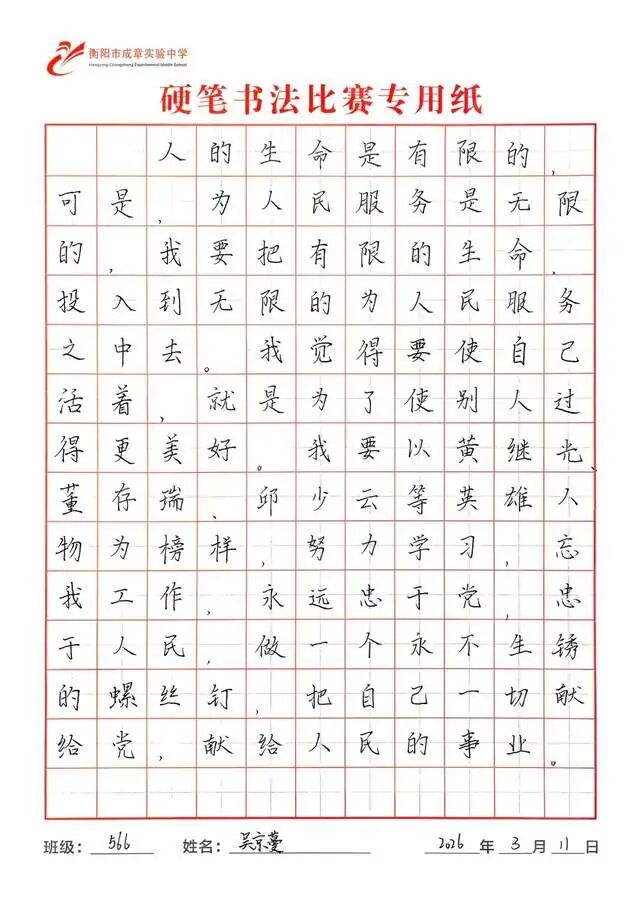 衡阳市成章实验中学
Hengyang Chengzhang Experimental Middle School
硬笔书法比赛专用纸
人的生命是有限的，
可是，为人民服务是无限
的，我要把有限的生命，
投入到无限的为人民服务
之中去。我觉得要使自己
活着，就是为了使别人过
得更美好。我要以黄继光、
董存瑞、邱少云等英雄人
物为榜样，努力学习，忘
我工作，永远忠于党，忠
于人民，做一个永不生锈
的螺丝钉，把自己一切献
给党，献给人民的事业。
班级：566 姓名：吴京蔓 2026年3月11日